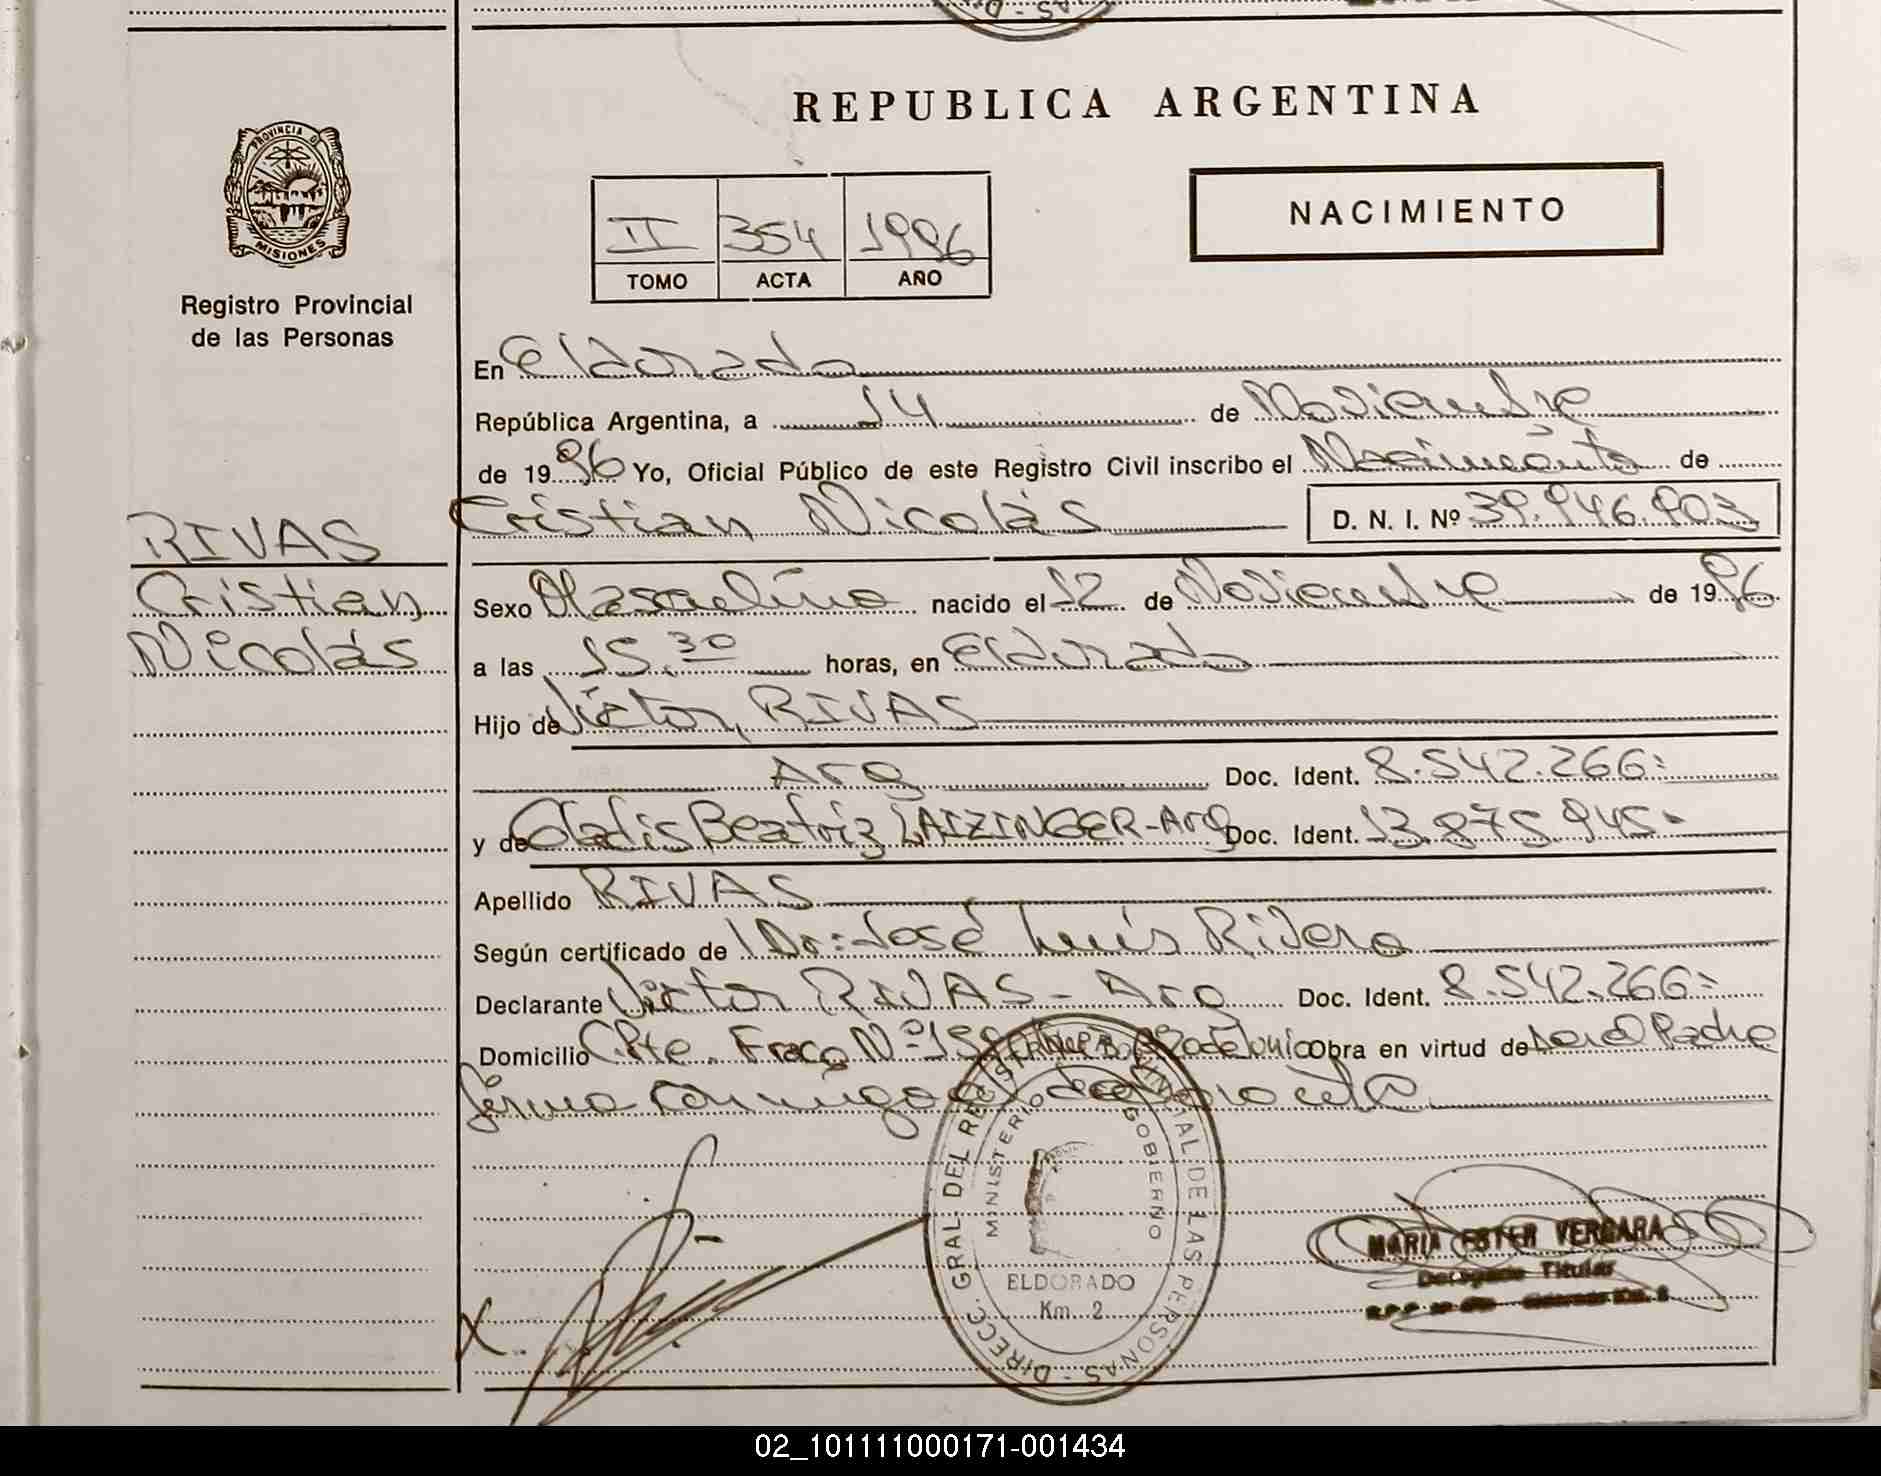 REPUBLICA ARGENTINA
PROVINCIA D
MISIONES
Registro Provincial
de las Personas
NACIMIENTO
II 354 1996
TOMO ACTA AÑO
En Eldorado
República Argentina, a 14 de Noviembre
de 1996 Yo, Oficial Público de este Registro Civil inscribo el Nacimiento de
Cristian Nicolás D. N. I. Nº 39.946.903
RIVAS
Cristian
Nicolás
Sexo Masculino nacido el 12 de Noviembre de 1996
a las 15.30 horas, en Eldorado
Hijo de Victor, RIVAS
Arg Doc. Ident. 8.542.266=
y de Gladis Beatriz LAIZINGER-Arg Doc. Ident. 13.875.945-
Apellido RIVAS
Según certificado de Dr: José Luis Rivero
Declarante Victor RIVAS - Arg Doc. Ident. 8.542.266=
Domicilio Cnte. Obra en virtud de ser el Padre
firma conmigo
DIRECC. GRAL. DEL REGISTRO PROVINCIAL DE LAS PERSONAS
MINISTERIO DE GOBIERNO
ELDORADO
Km. 2
X.
MARIA ESTER VERGARA
Delegado Titular
02_101111000171-001434